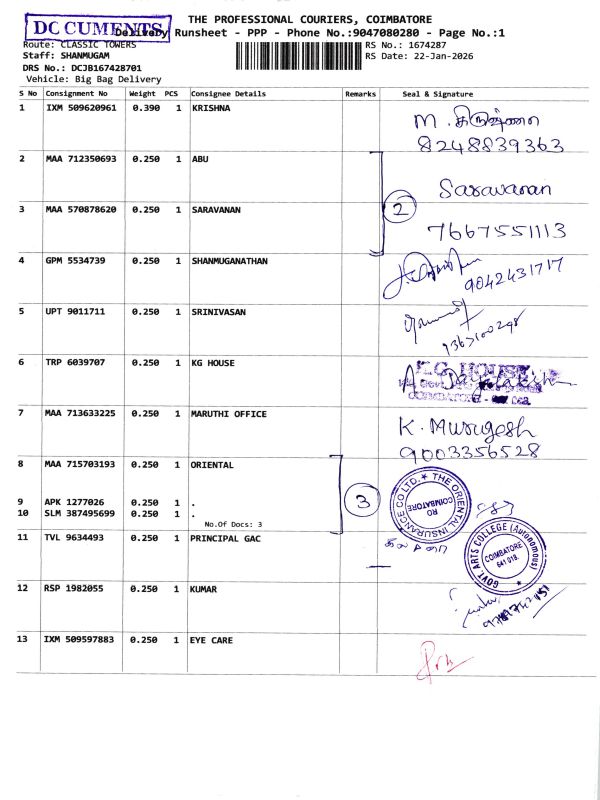 THE PROFESSIONAL COURIERS, COIMBATORE
DOCUMENTS
Delivery Runsheet - PPP - Phone No.:9047080280 - Page No.:1
Route: CLASSIC TOWERS
RS No.: 1674287
Staff: SHANMUGAM
RS Date: 22-Jan-2026
DRS No.: DCJB167428701
Vehicle: Big Bag Delivery
S No Consignment No Weight PCS Consignee Details Remarks Seal & Signature
1 IXM 509620961 0.390 1 KRISHNA
M.
8248839363
2 MAA 712350693 0.250 1 ABU
Saravanan
3 MAA 570878620 0.250 1 SARAVANAN
2
7667551113
4 GPM 5534739 0.250 1 SHANMUGANATHAN
9042431717
5 UPT 9011711 0.250 1 SRINIVASAN
9367100298
6 TRP 6039707 0.250 1 KG HOUSE
K.G. HOUSE
COIMBATORE
7 MAA 713633225 0.250 1 MARUTHI OFFICE
K. Murugesh
9003356528
8 MAA 715703193 0.250 1 ORIENTAL
THE ORIENTAL INSURANCE CO LTD.
RO
COIMBATORE
9 APK 1277026 0.250 1 .
3
10 SLM 387495699 0.250 1 .
No.Of Docs: 3
11 TVL 9634493 0.250 1 PRINCIPAL GAC
GOVT. ARTS COLLEGE (Autonomous)
COIMBATORE
641 018.
12 RSP 1982055 0.250 1 KUMAR
13 IXM 509597883 0.250 1 EYE CARE